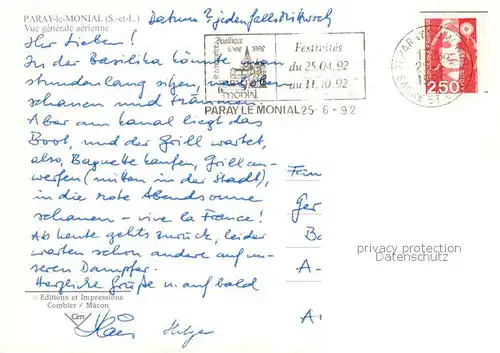 PARAY-le-MONIAL (S.-et-L.)
Vue générale aérienne
Datum ? jedenfalls Mittwoch
Ihr Lieben!
In der Basilika könnte man
stundenlang sitzen,
schauen und träumen
Aber am Kanal liegt das
Boot, und der Grill wartet,
also, Baguette kaufen, Grill an-
werfen (mitten in der Stadt),
in die rote Abendsonne
schauen - vive la France!
Ab heute gehts zurück, leider
warten schon andere auf un-
seren Dampfer.
Herzliche Grüße u. auf bald
Holger
Basilique
1092 1992
Festivités
du 25.04.92
au 11.10.92
PARAY LE MONIAL 25-6-92
71 PARAY
SAONE ET
2,50
Fam
Ger
A
privacy protection
Datenschutz
Editions et Impressions
Combier / Mâcon
Cim